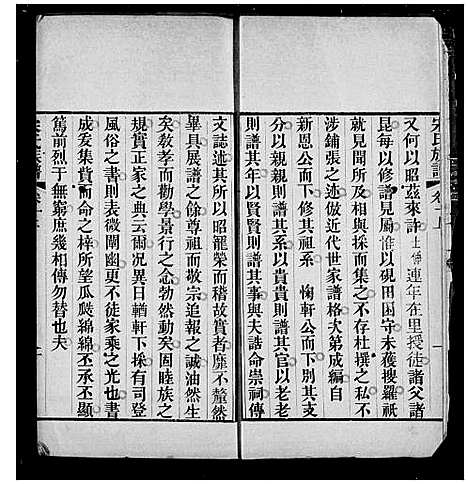 宋氏族譜
又何以昭茲來許士傳連年在里授徒諸父諸
昆每以修譜見屬惟以硯田困守未獲搜羅祇
就見聞所及相與採而集之不存杜撰之私不
涉鋪張之迹倣近代世家譜格次第成編自
新恩公而下修其祖系 鞠軒公而下別其支
分以親親則譜其系以貴貴則譜其官以老老
則譜其年以賢賢則譜其事與夫誥命崇祠傳
文誌述其所以昭寵榮而稽故實者靡不釐然
畢具展譜之餘尊祖而敬宗追報之誠油然生
矣敎孝而勸學景行之念勃然動矣固睦族之
規實正家之典云爾况異日輶軒下採有司登
風俗之書則表微闡幽更不徒家乘之光也書
成爰集貲而命之梓所望瓜瓞綿綿丕承丕顯
篤前烈于無窮庶幾相傳勿替也夫